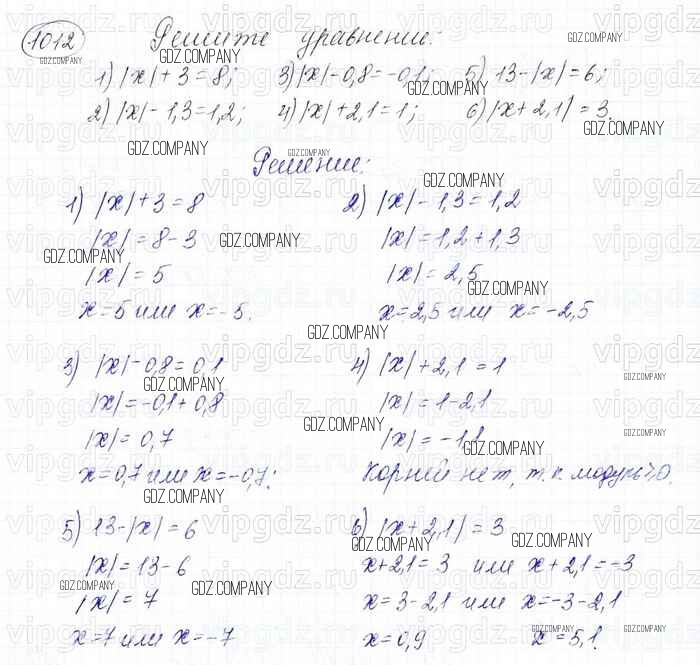 1012 Решите уравнение:
1) |x| + 3 = 8; 3) |x| - 0,8 = -0,1; 5) 13 - |x| = 6;
2) |x| - 1,3 = 1,2; 4) |x| + 2,1 = 1; 6) |x + 2,1| = 3.
Решение:
1) |x| + 3 = 8
|x| = 8 - 3
|x| = 5
x = 5 или x = -5.
2) |x| - 1,3 = 1,2
|x| = 1,2 + 1,3
|x| = 2,5
x = 2,5 или x = -2,5
3) |x| - 0,8 = 0,1
|x| = -0,1 + 0,8
|x| = 0,7
x = 0,7 или x = -0,7;
4) |x| + 2,1 = 1
|x| = 1 - 2,1
|x| = -1,1
Корней нет, т.к. модуль ≥ 0.
5) 13 - |x| = 6
|x| = 13 - 6
|x| = 7
x = 7 или x = -7
6) |x + 2,1| = 3
x + 2,1 = 3 или x + 2,1 = -3
x = 3 - 2,1 или x = -3 - 2,1
x = 0,9 x = 5,1.
GDZ.COMPANY
vipgdz.ru